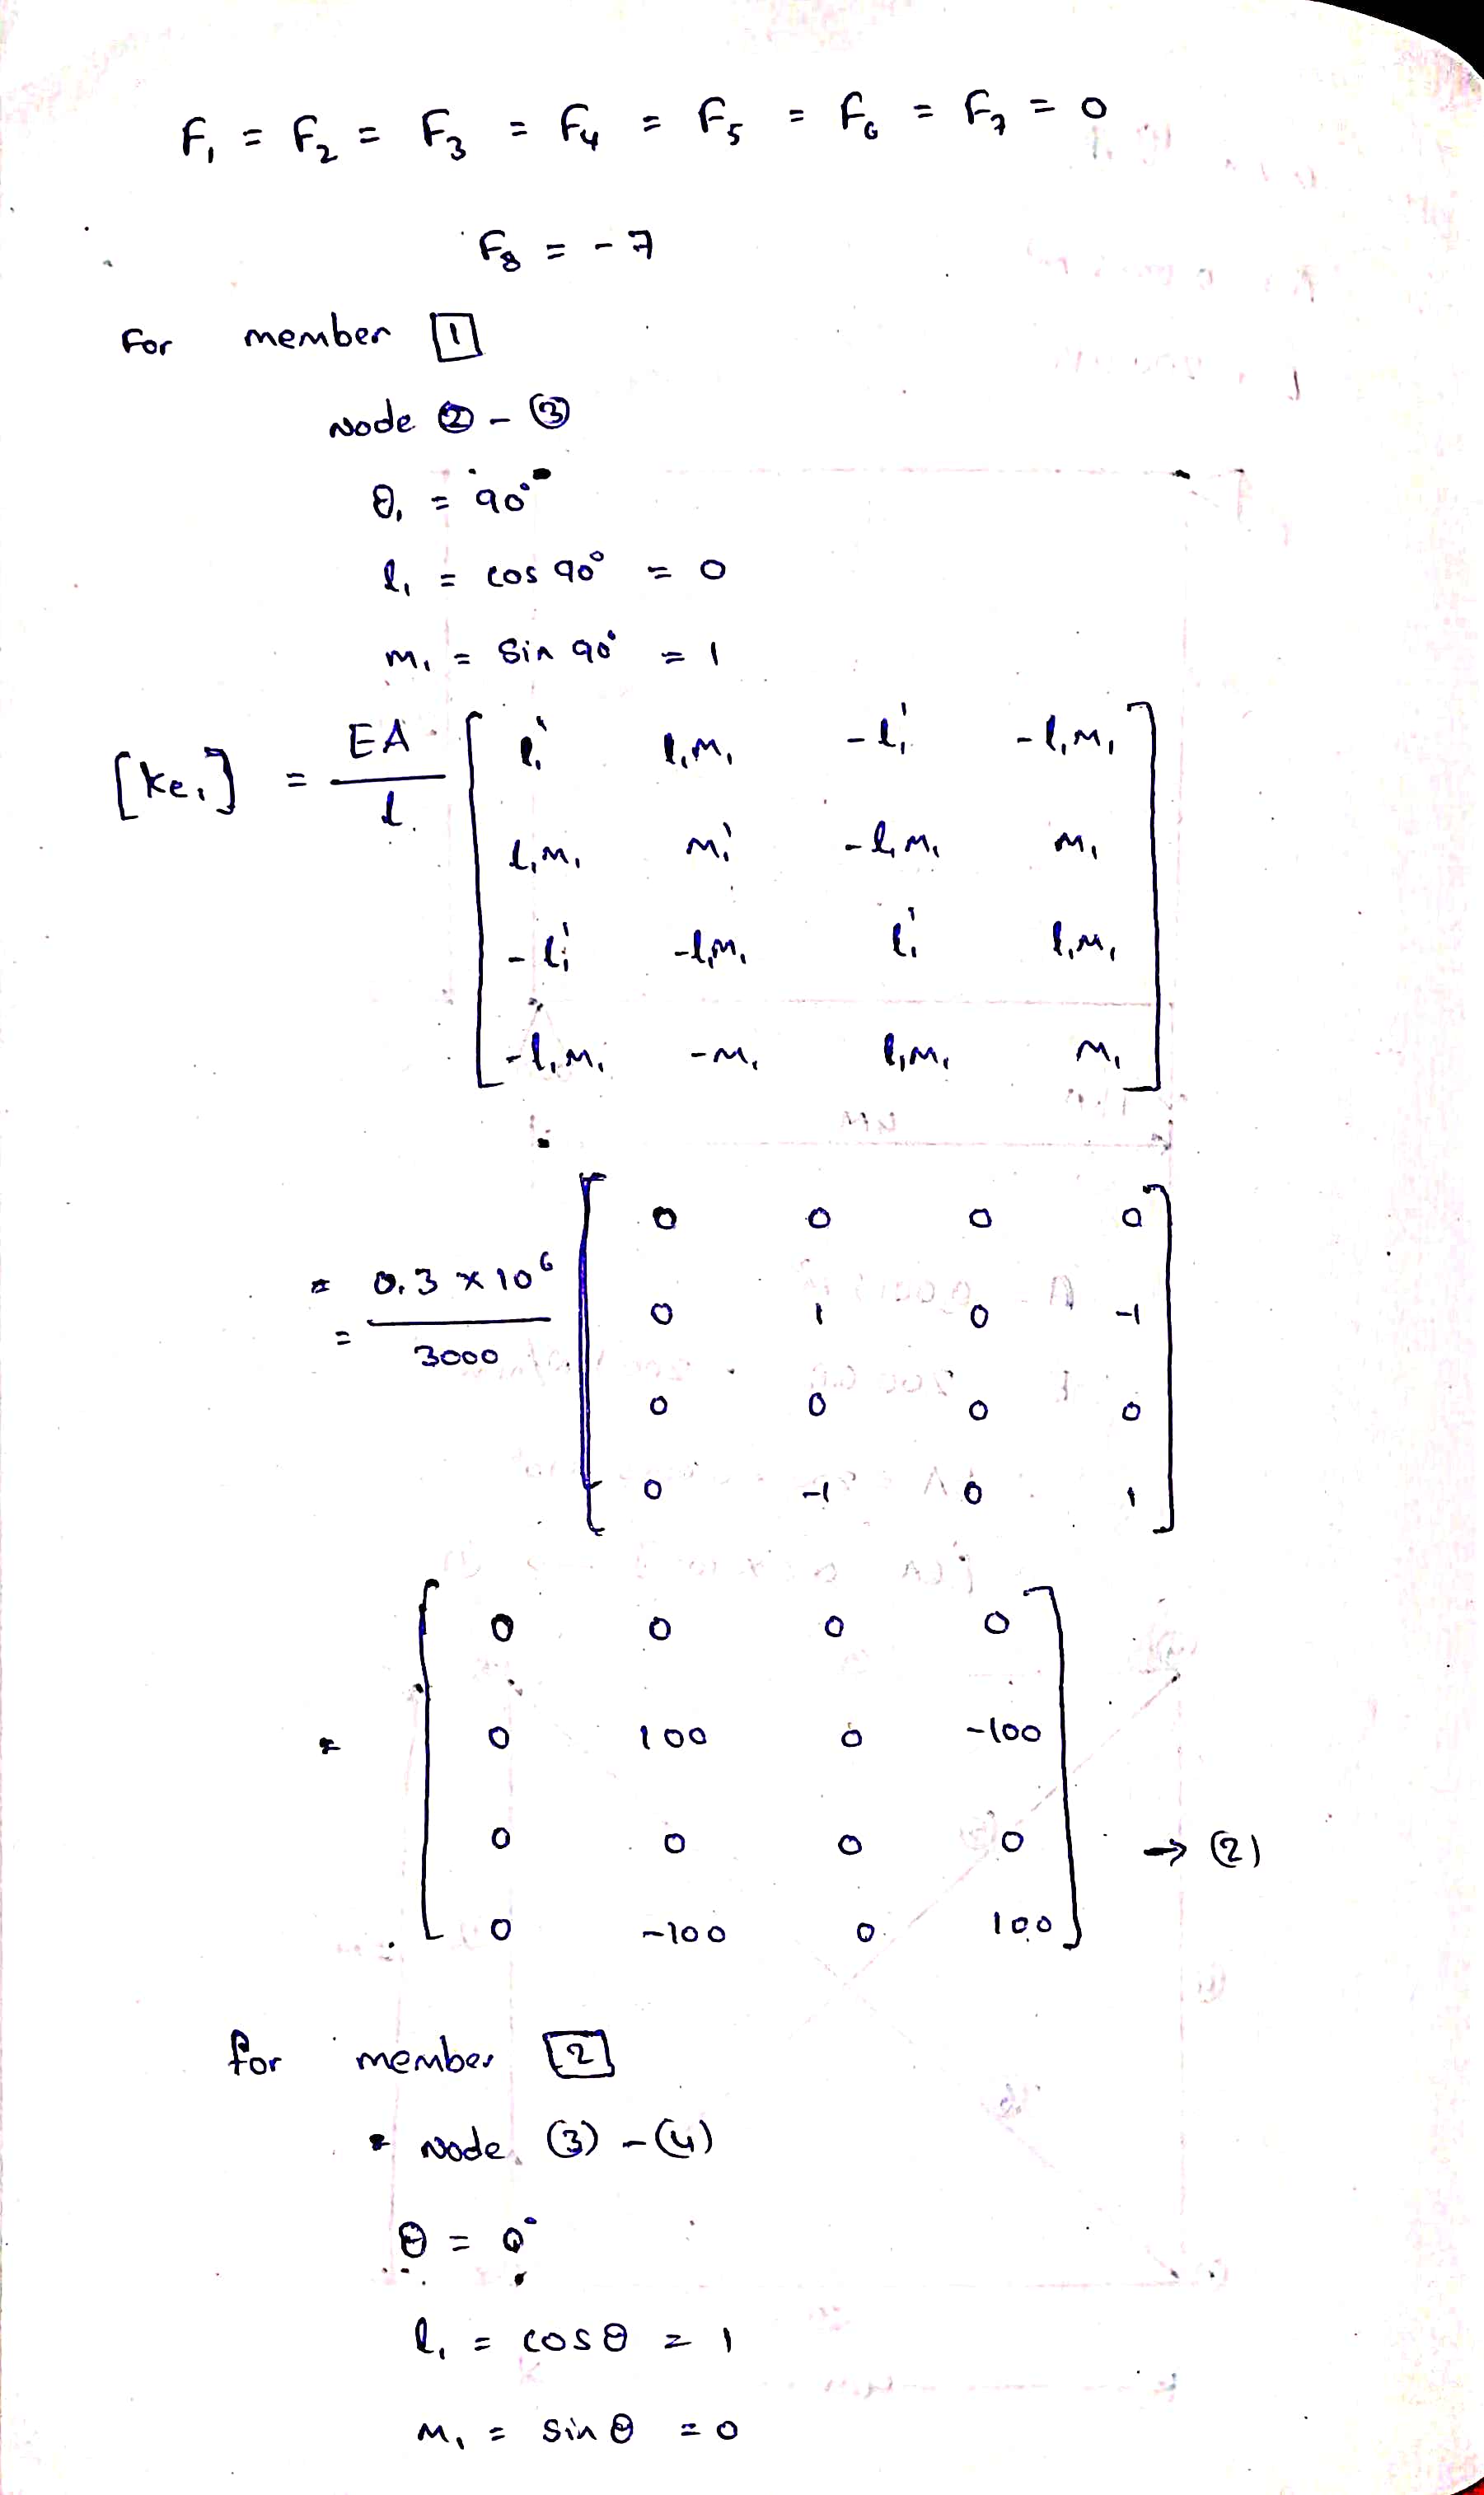 F₁ = F₂ = F₃ = F₄ = F₅ = F₆ = F₇ = 0
F₈ = -7
For member [1]
Node ② - ③
θ₁ = 90°
l₁ = cos 90° = 0
m₁ = Sin 90° = 1
[ke₁] = EA / l
l₁' l₁m₁ -l₁' -l₁m₁
l₁m₁ m₁' -l₁m₁ m₁
-l₁' -l₁m₁ l₁' l₁m₁
-l₁m₁ -m₁ l₁m₁ m₁
= 0.3 × 10⁶ / 3000
0 0 0 0
0 1 0 -1
0 0 0 0
0 -1 0 1
=
0 0 0 0
0 100 0 -100
0 0 0 0 → (2)
0 -100 0 100
for member [2]
Node (3) - (4)
θ = 0°
l₁ = cos θ = 1
m₁ = sin θ = 0